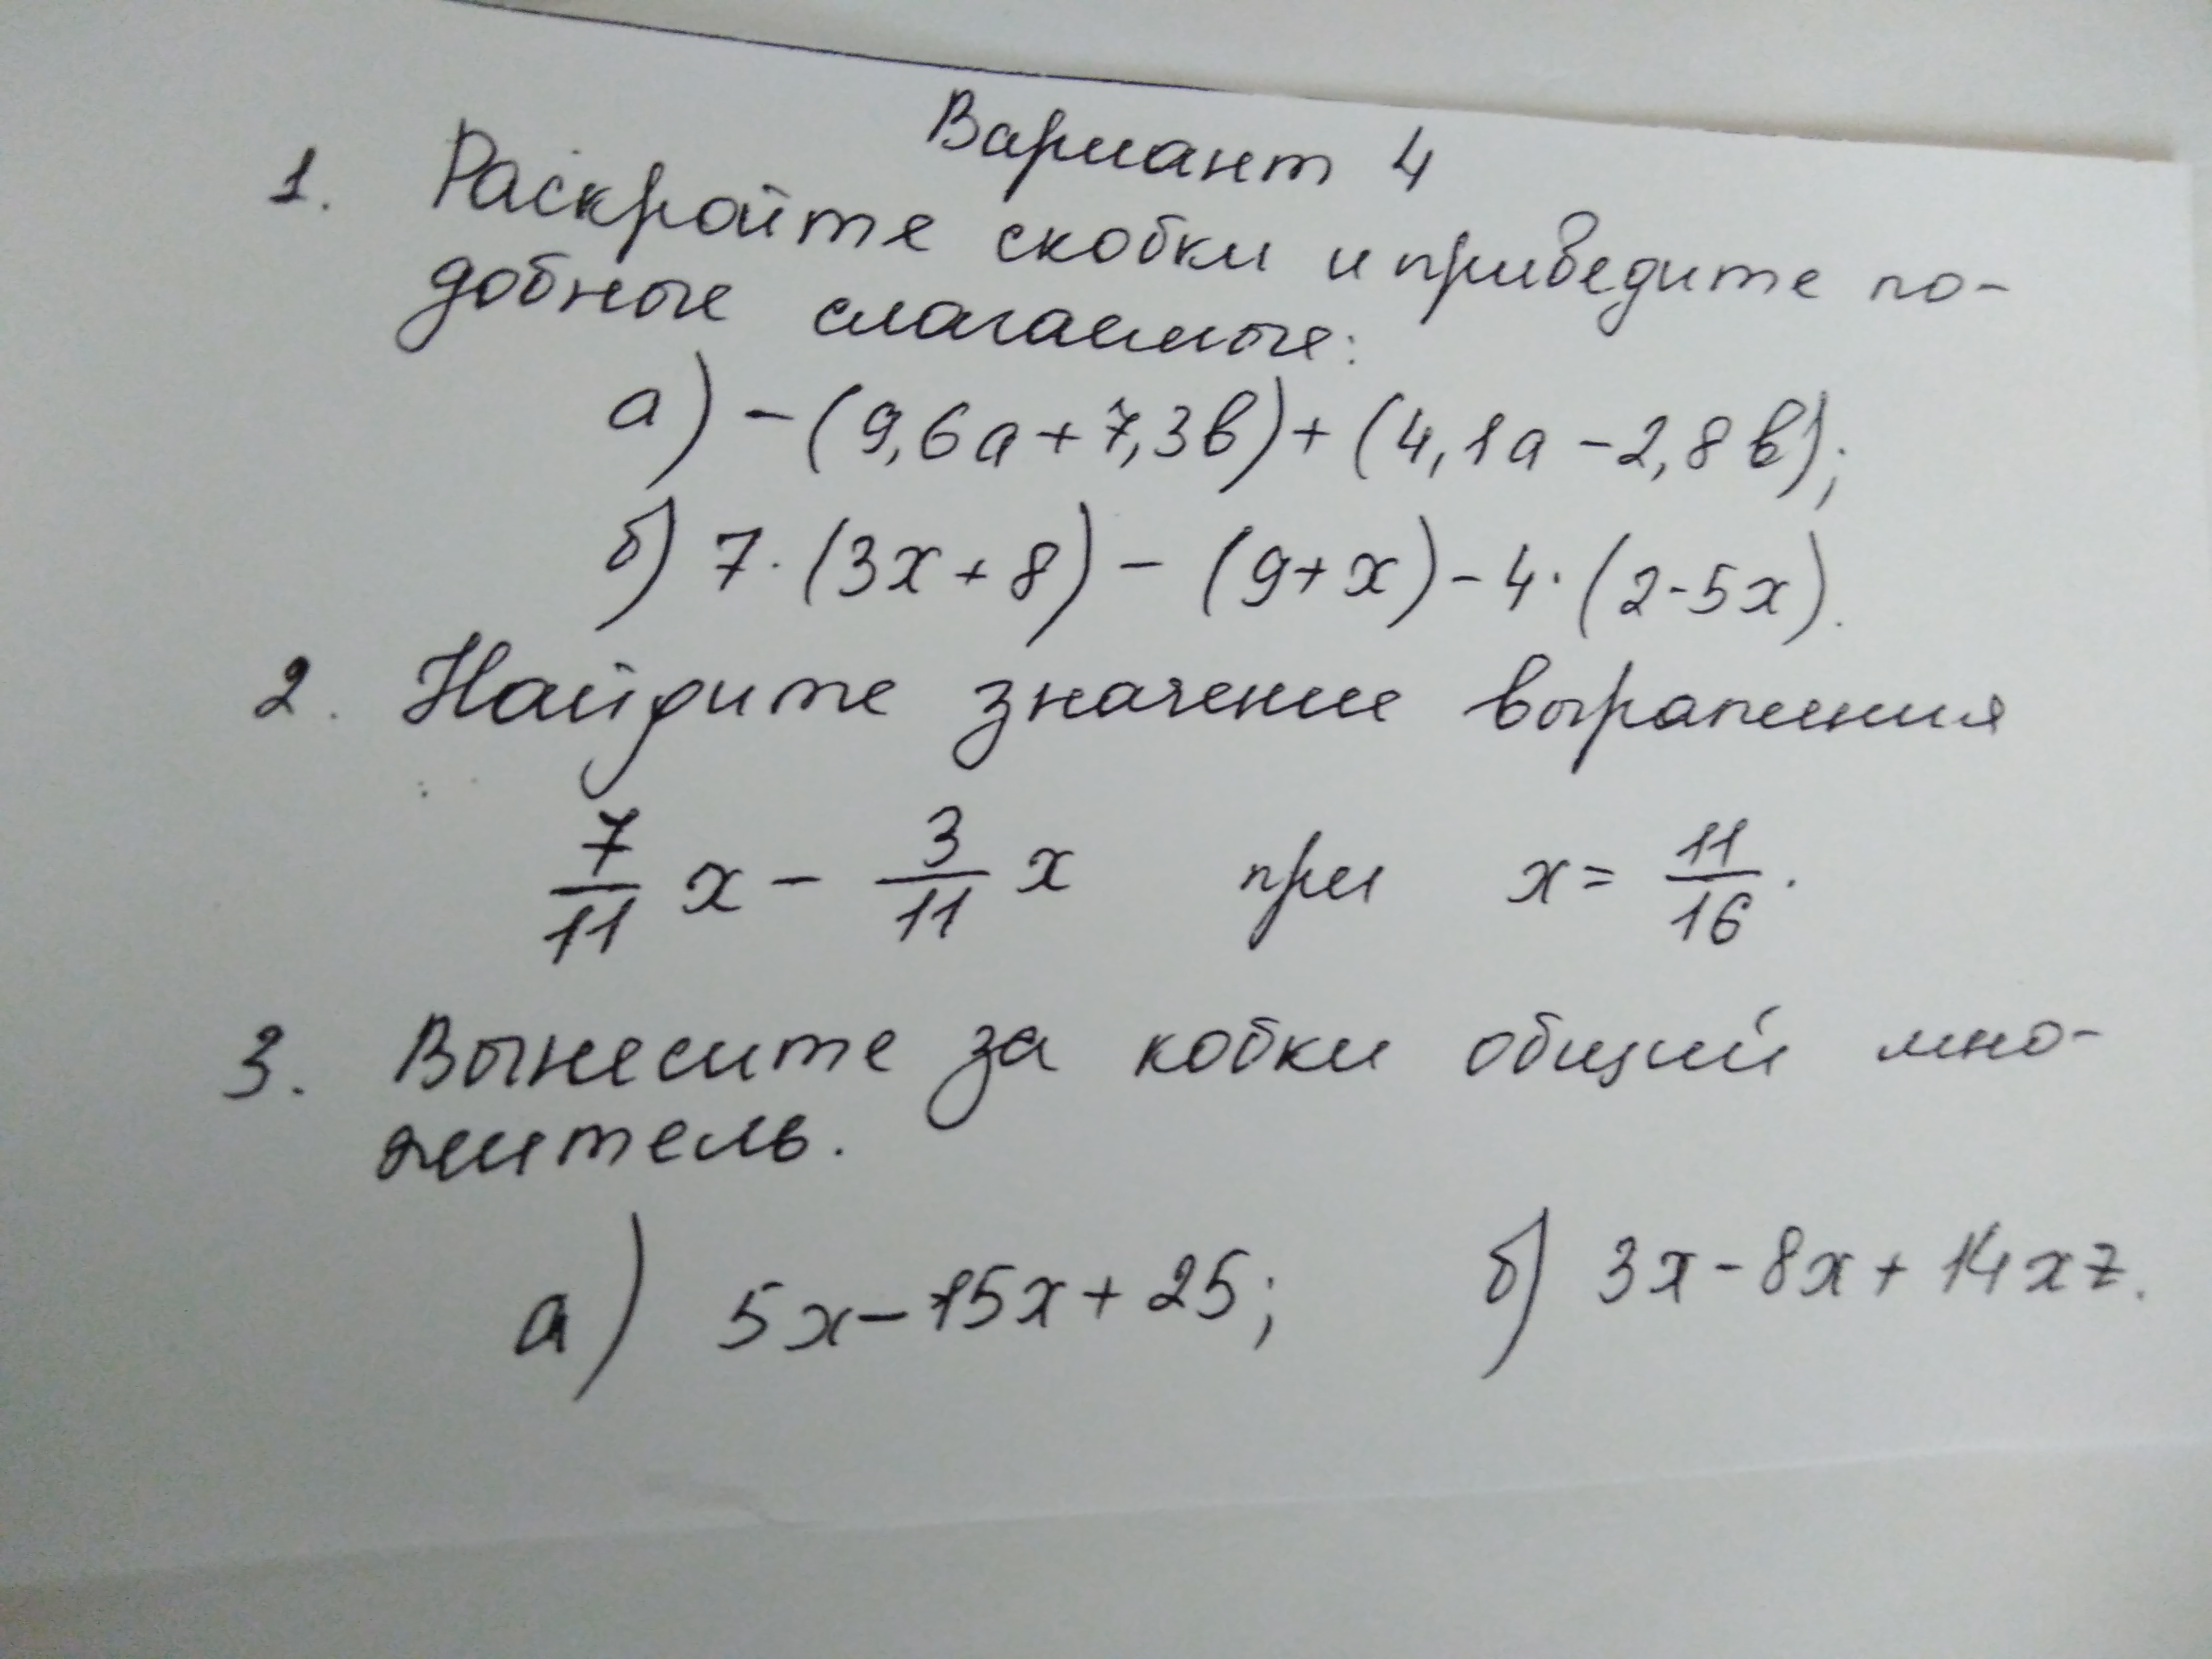 Вариант 4
1. Раскройте скобки и приведите по-
добные слагаемые:
а) -(9,6а+7,3в)+(4,1а-2,8в);
б) 7·(3х+8)-(9+х)-4·(2-5х).
2. Найдите значение выражения
7/11 х - 3/11 х при х = 11/16.
3. Вынесите за кобки общий мно-
житель.
а) 5х-15х+25; б) 3х-8х+14xz.